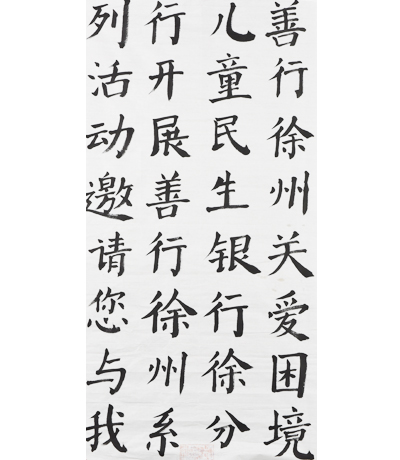 善行徐州关爱困境
儿童民生银行徐分
行开展善行徐州系
列活动邀请您与我